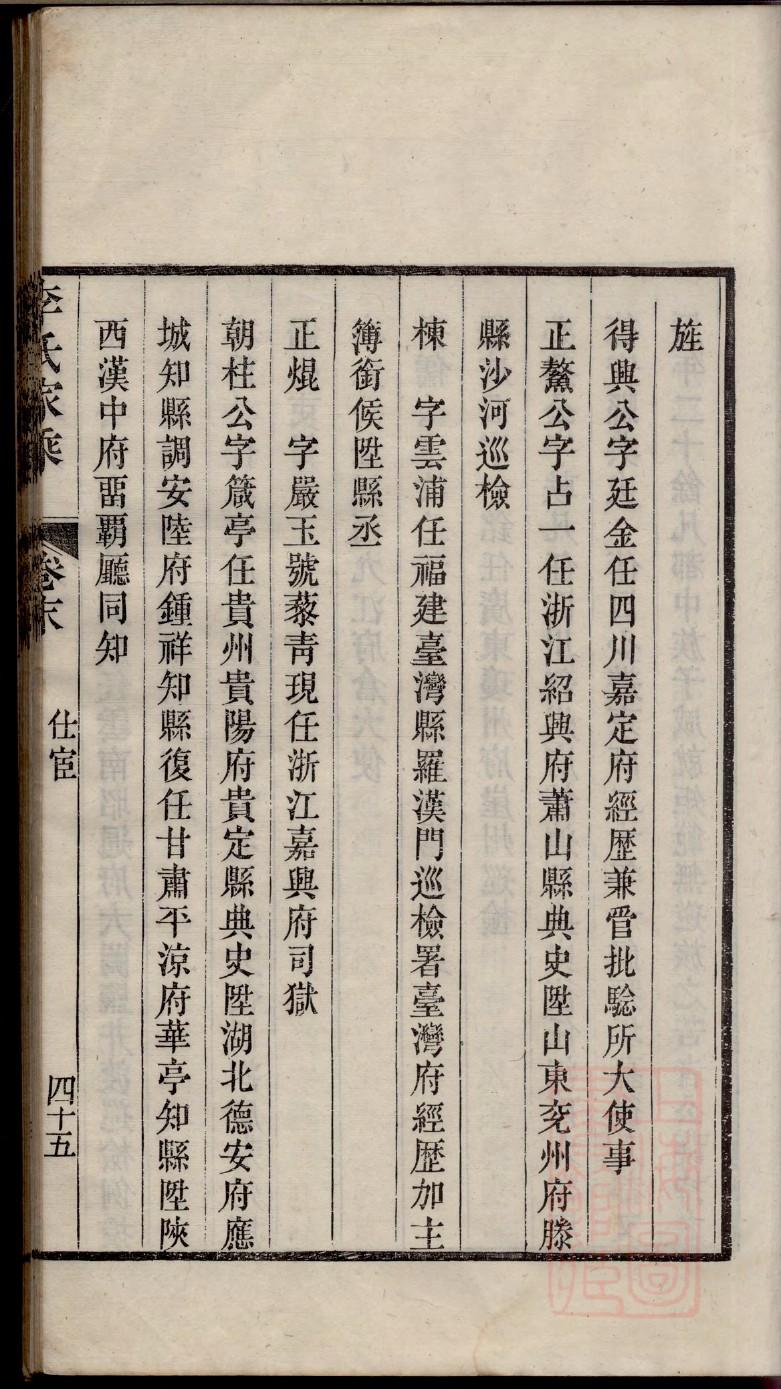 旌
得興公字廷金任四川嘉定府經歷兼管批驗所大使事
正鰲公字占一任浙江紹興府蕭山縣典史陞山東兗州府滕
縣沙河巡檢
棟　字雲浦任福建臺灣縣羅漢門巡檢署臺灣府經歷加主
簿銜候陞縣丞
正焜　字嚴玉號藜靑現任浙江嘉興府司獄
朝柱公字箴亭任貴州貴陽府貴定縣典史陞湖北德安府應
城知縣調安陸府鍾祥知縣復任甘肅平凉府華亭知縣陞陝
西漢中府畱覇廳同知
李氏家乘　卷末　仕宦　四十五